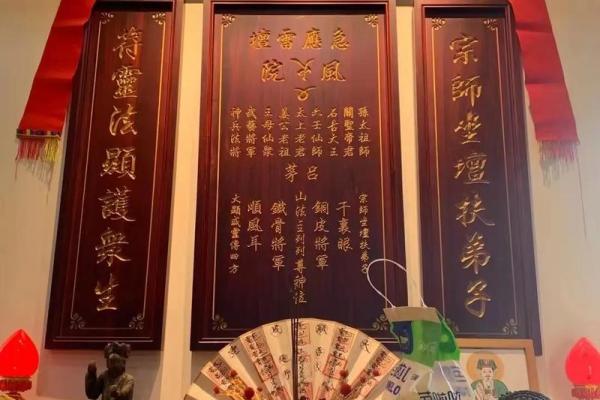 宗師坐壇扶弟子
急應雷壇
風火院
孫太祖師
關聖帝君
石古大王
六壬仙師
太上老君
姜公老祖
王母仙衆
武藝將軍
神兵法將
呂茅
宗師坐壇扶弟子
千裏眼
銅皮將軍
山法立列列尊神位
鐵骨將軍
順風耳
大顯威靈傳四方
符靈法顯護衆生